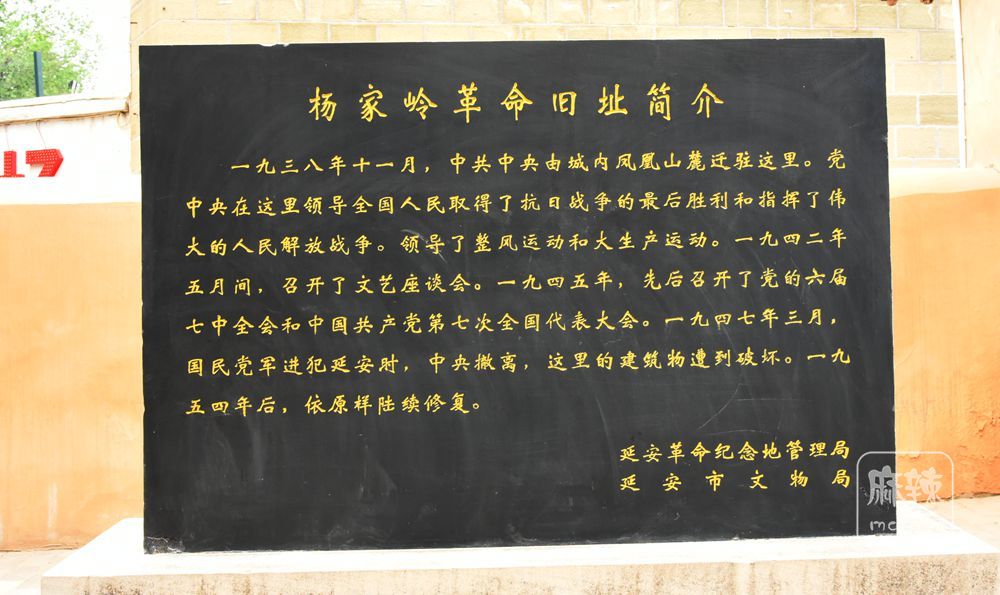 杨家岭革命旧址简介
一九三八年十一月，中共中央由城内凤凰山麓迁驻这里。党
中央在这里领导全国人民取得了抗日战争的最后胜利和指挥了伟
大的人民解放战争。领导了整风运动和大生产运动。一九四二年
五月间，召开了文艺座谈会。一九四五年，先后召开了党的六届
七中全会和中国共产党第七次全国代表大会。一九四七年三月，
国民党军进犯延安时，中央撤离，这里的建筑物遭到破坏。一九
五四年后，依原样陆续修复。
延安革命纪念地管理局
延安市文物局
麻辣